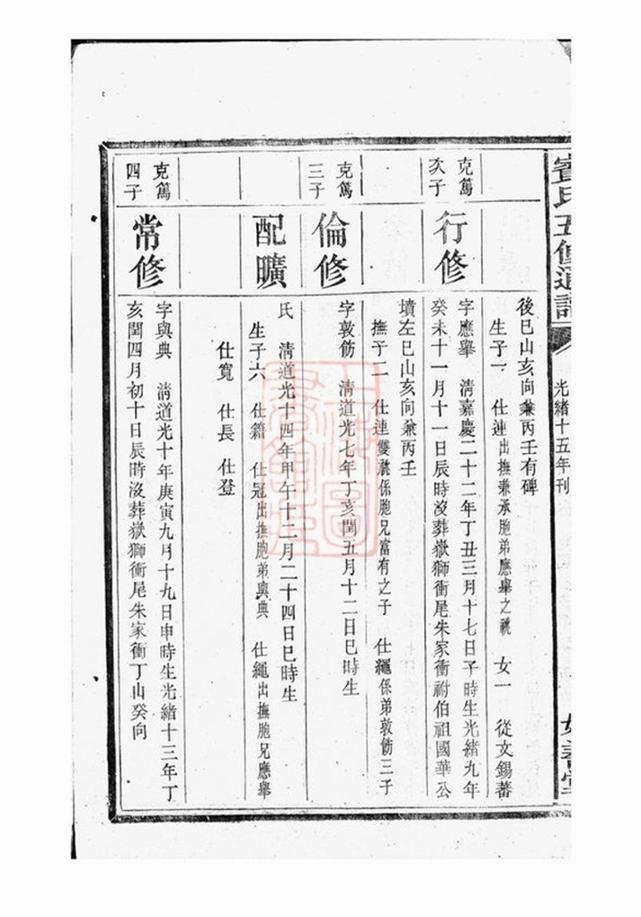 氏五修通譜
光緒十五年刊
後巳山亥向兼丙壬有碑
生子一 仕連出撫兼承胞弟應舉之祧 女一 從文錫蕃
克篤
次子
行修
字應舉 清嘉慶二十二年丁丑三月十七日子時生光緒九年
癸未十一月十一日辰時沒葬嶽獅衝尾朱家衝祔伯祖國華公
墳左巳山亥向兼丙壬
撫子二 仕連雙祧係胞兄富有之子 仕繩係弟敦飭三子
克篤
三子
倫修
字敦飭 清道光七年丁亥閏五月十二日巳時生
配曠
氏 清道光十四年甲午十二月二十四日巳時生
生子六 仕籍 仕冠出撫胞弟與典 仕繩出撫胞兄應舉
仕寬 仕長 仕登
克篤
四子
常修
字與典 清道光十年庚寅九月十九日申時生光緒十三年丁
亥閏四月初十日辰時沒葬嶽獅衝尾朱家衝丁山癸向